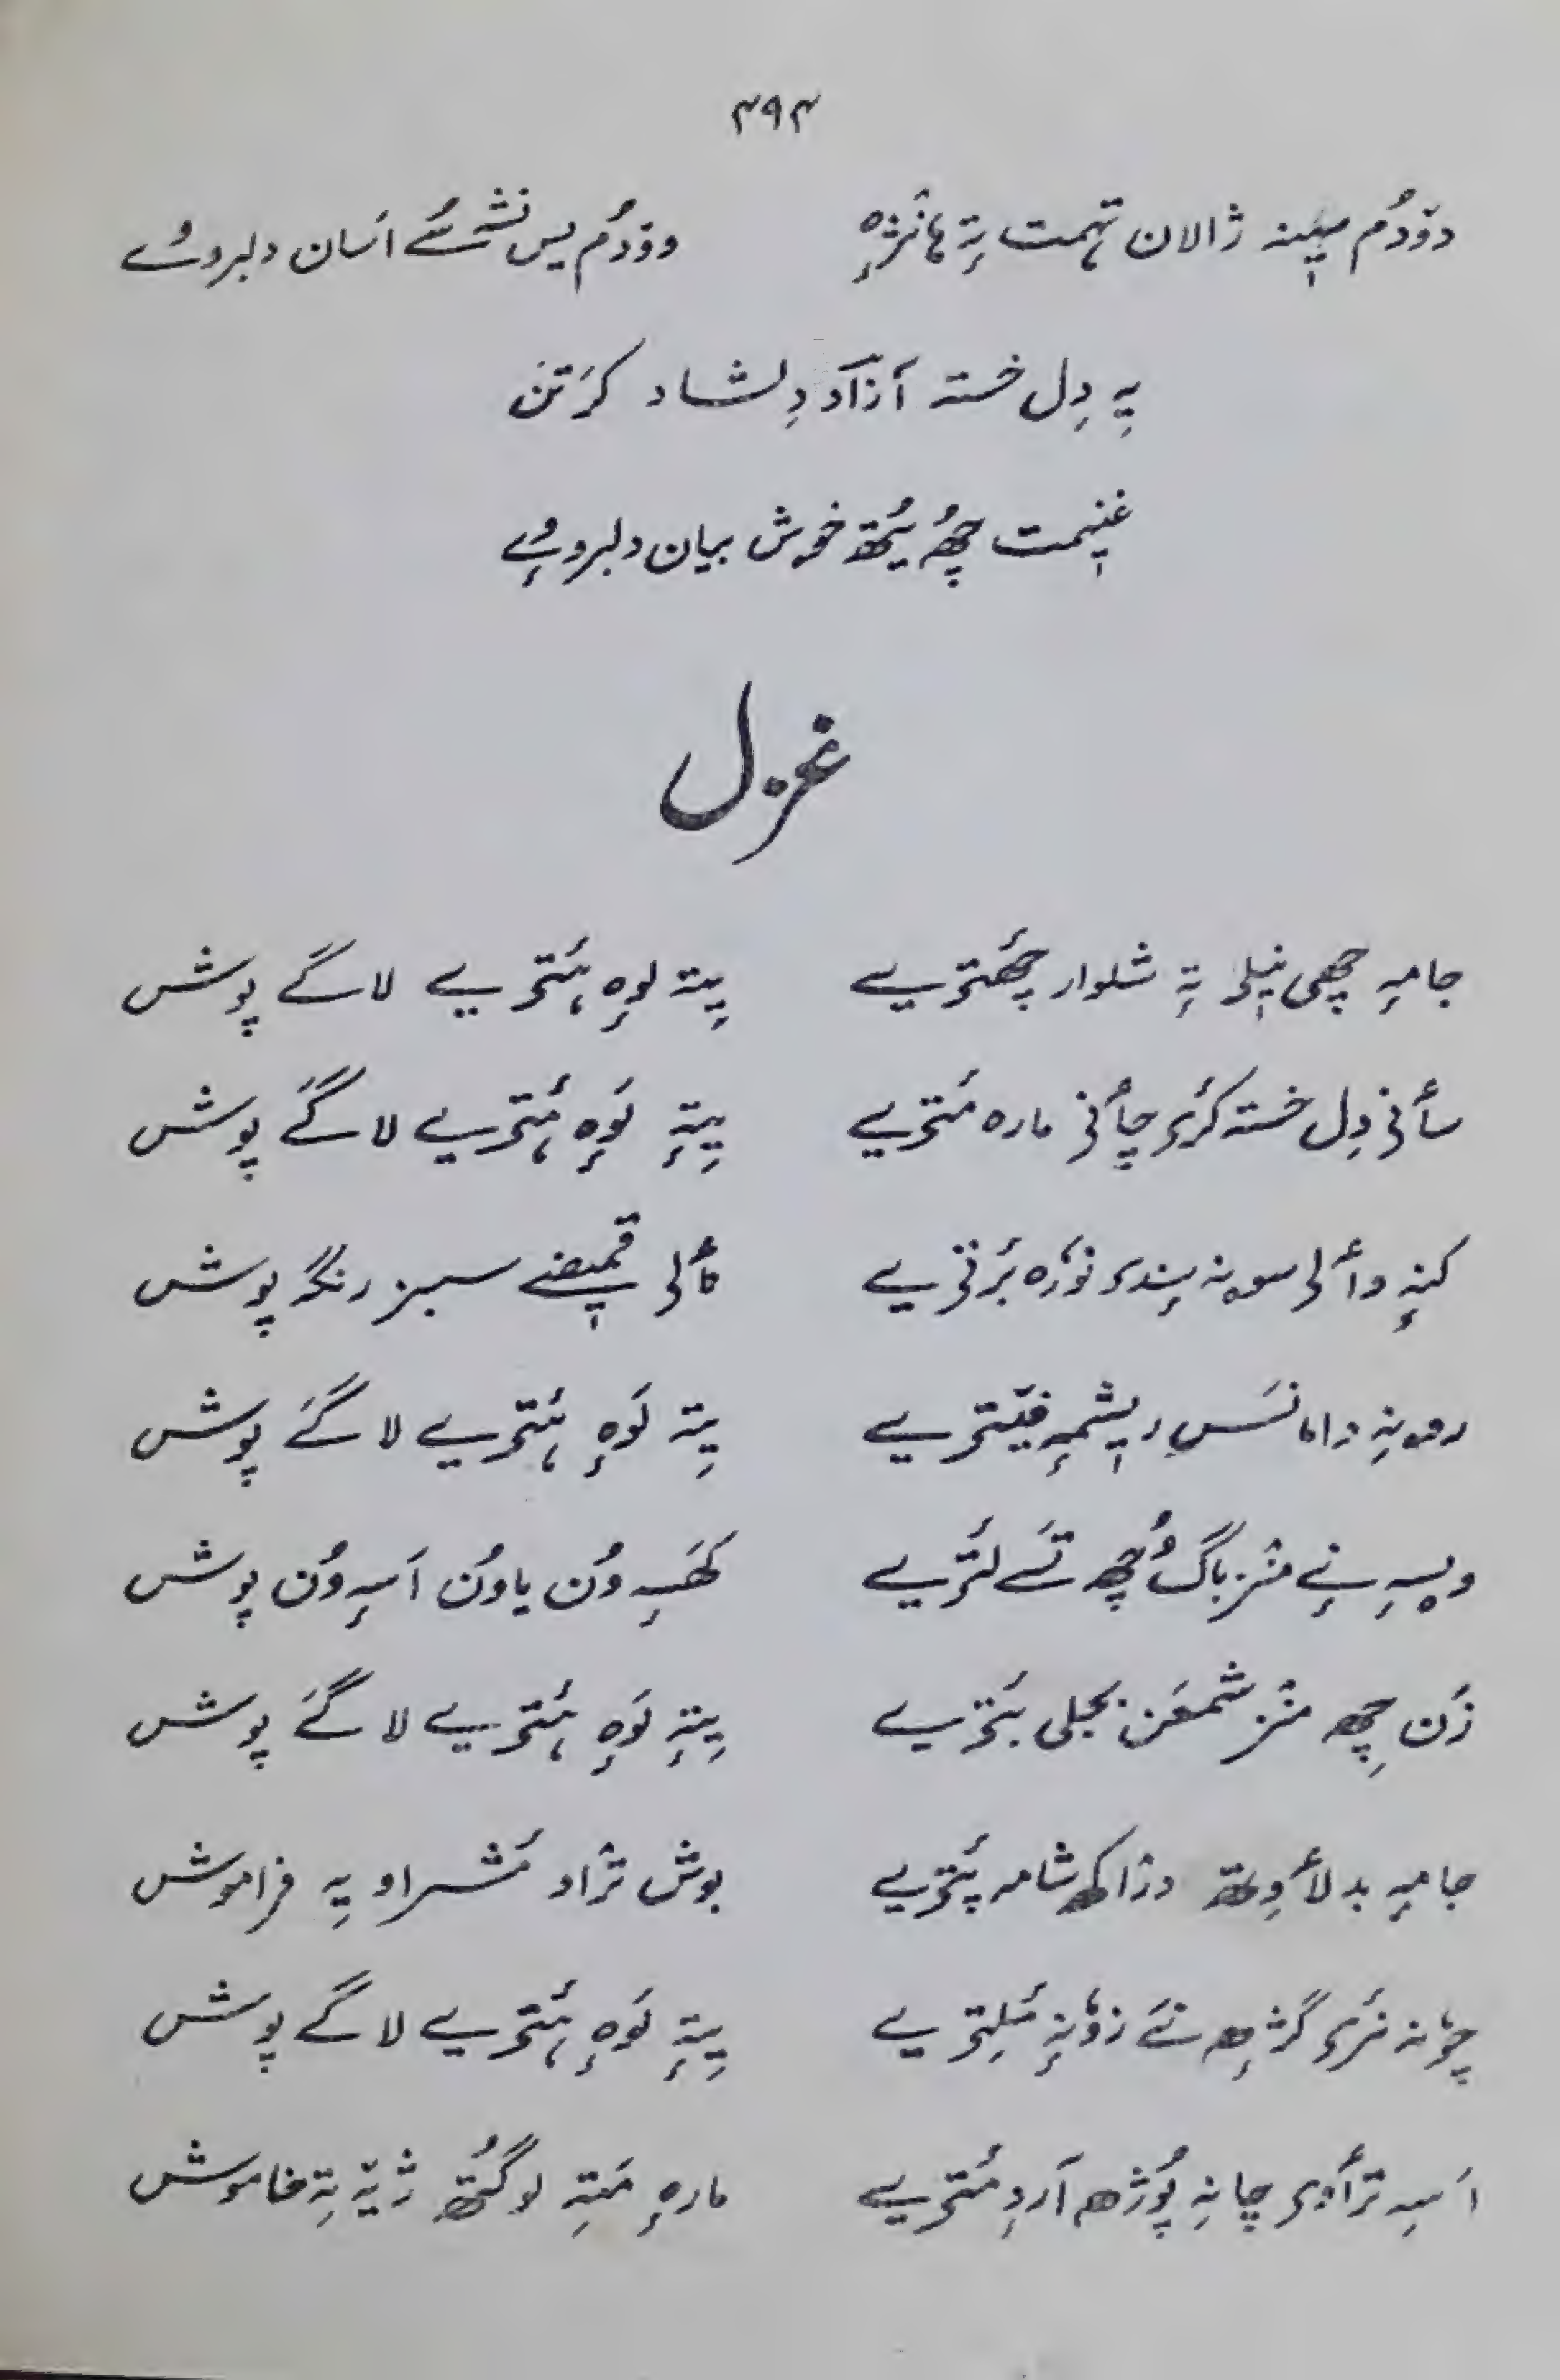 ۴۹۴
دوٚدُم سیٖنہ ژالان تہمت تہٕ ہانژھ ووٚدُم یس نشہِ سُے اَسان دلبروے
یہِ دِل خستہ آزاد دِلشاد کرَتن
غنیٖمت چھُ یُتھ خوش بیان دلبروٕے
غزل
جامہٕ چھی نیٖلی تہٕ شلوار چھَترٕیے پتہٕ لوہٕ ہَترٕیے لاگے پوش
سأنی دِل خستہ کرٔی چأنی مارہ مَترٕیے پتہٕ لَوہٕ ہَترٕیے لاگے پوش
کنہٕ وألی سونہ سٕندی نوٗرہ بَرٔتی یے نألی قمیٖضے سبز رنگہ پوش
رۄنہِ دامانَس ریٖشمہٕ فیٚترٕیے پتہِ لَوہٕ ہَترٕیے لاگے پوش
ویسہِ نہٕ منز باگ وُچھ تَسے لَترٕیے کھَسہِ وُن یاوُن اَسہٕ وُن پوش
زَن چھِ منز شمعَن بجلی بَترٕیے پتہِ لَوہٕ ہَترٕیے لاگے پوش
جامہٕ بدلأوِتھ دراکھ شامہ پَترٕیے ہوش ترٛاو مَشراو یہِ فراموش
چوٗنہ نرٔی گژھہٕ نَے زوٗنہٕ مٔلِترٕیے پتہِ لَوہٕ ہَترٕیے لاگے پوش
اَسہِ ترٛأوی چانہِ پوٚژھ آردِ مَترٕیے مارہٕ مَتہِ لوگتُھ ژیہِ تہِ خاموش